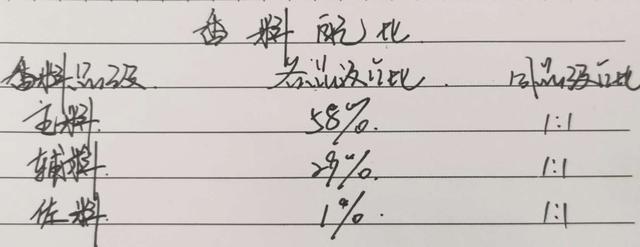 香料配比
香料品级 各品级占比 同品级占比
主料 58% 1:1
辅料 29% 1:1
佐料 1% 1:1